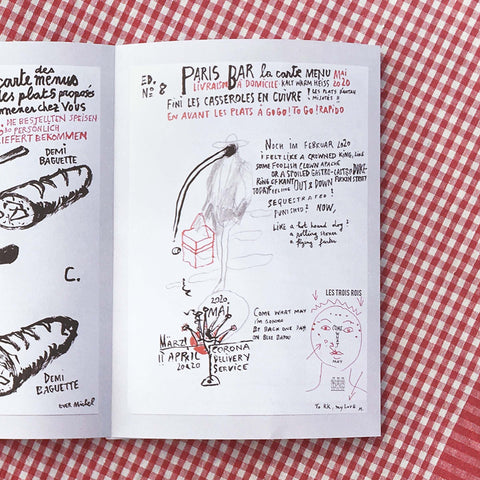 des
carte menus
des plats proposés
mener chez Vous
HE BESTELLTEN SPEISEN
PERSÖNLICH
LIEFERT BEKOMMEN
DEMI
BAGUETTE
C.
DEMI
BAGUETTE
EVER Michel
ED.
No 8
PARIS BAR la carte MENU MAI
LIVRAISON À DOMICILE KALT WARM HEISS 2020
FINI LES CASSEROLES EN CUIVRE ! LES PLATS
EN AVANT LES PLATS À GOGO! TO GO! RAPIDO
NOCH IM FEBRUAR 2020
I FELT LIKE A CROWNED KING, LIKE
SOME FOOLISH CLOWN APACHE
OR A SPOILED GASTRO-CASTRO
RING OF KANT
TODAY FEELING OUT & DOWN
SEQUESTRATED!
PUNISHED? NOW,
LIKE A hot hound dog?
a rolling stone
a flying
2020
MAI
MÄRZ
APRIL
2020
CORONA
DELIVERY
SERVICE
COME WHAT MAY
I'm GONNA
BE BACK ONE DAY
ON BLUE
LES TROIS ROIS
To KK, my love M.